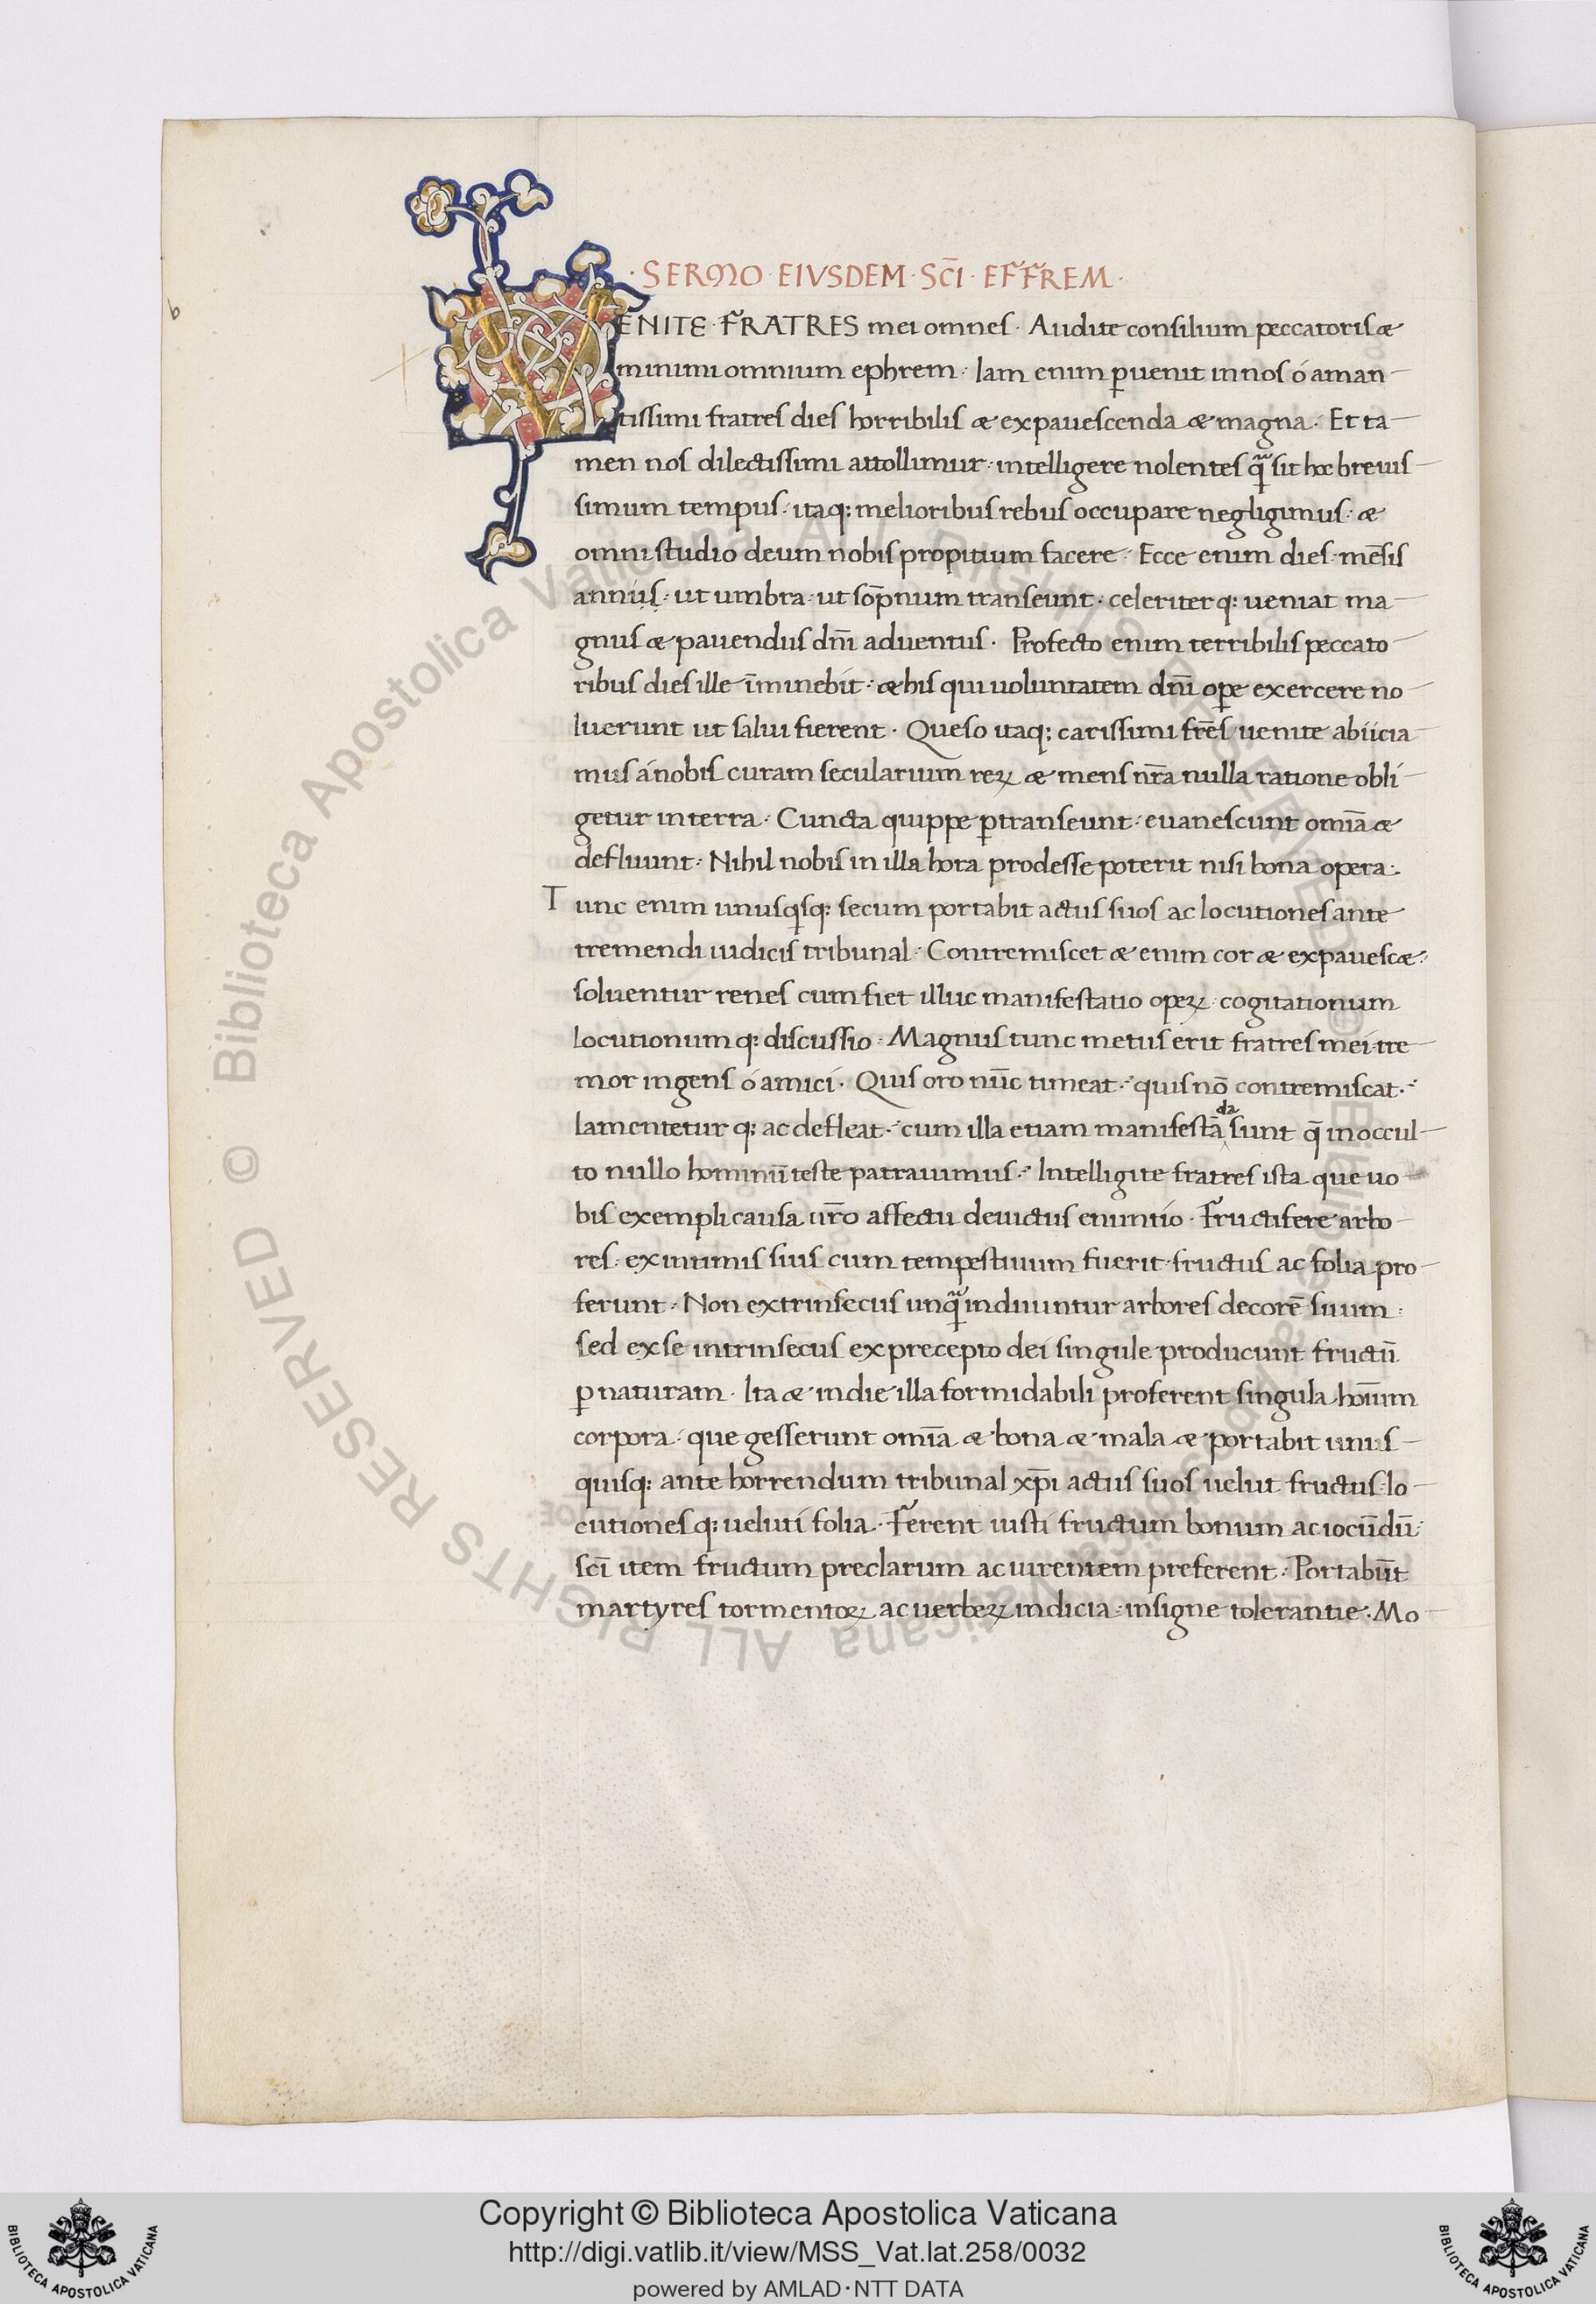 · SERMO · EIVSDEM · SC̄I · EFFREM ·
VENITE · FRATRES mei omnes · Audite consilium peccatoris æ
minimi omnium ephrem · Iam enim ꝑuenit in nos ó aman-
tissimi fratres dies horribilis æ expauescenda æ magna · Et ta-
men nos dilectissimi attollimur · intelligere nolentes sit hoc breuis-
simum tempus · itaq: melioribus rebus occupare negligimus · æ
omni studio deum nobis propitium facere · Ecce enim dies · mēsis
annus · ut umbra · ut sop̄num transeunt · celeriterq: ueniat ma-
gnus æ pauendus dn̄i aduentus · Profecto enim terribilis peccato-
ribus dies ille īminebit · æ his qui uoluntatem dn̄i oꝑe exercere no-
luerunt ut salui fierent · Queso itaq: carissimi fr̄es uenite abiicia-
mus á nobis curam secularium reꝝ æ mens nr̄a nulla ratione obli-
getur in terra · Cuncta quippe ꝑtranseunt · euanescunt omīa æ
defluunt · Nihil nobis in illa hora prodesse poterit nisi bona opera ·
Tunc enim unusqisq: secum portabit actus suos ac locutiones ante
tremendi iudicis tribunal · Contremiscet æ enim cor æ expauescæ ·
soluentur renes cum fiet illuc manifestatio oꝑeꝝ · cogitationum
locutionum q: discussio · Magnus tunc metus erit fratres mei · tre-
mor ingens ó amici · Quis oro nūc timeat · quis nō contremiscat ·
lamentetur q: ac defleat · cum illa etiam manifestāda sunt q̄ in occul-
to nullo hominū teste patrauimus · Intelligite fratres ista que uo-
bis exempli causa ur̄o affectu deuictus enuntio · Fructifere arbo-
res · ex intimis suis cum tempestiuum fuerit · fructus ac folia pro-
ferunt · Non extrinsecus induuntur arbores decorē suum ·
sed ex se intrinsecus ex precepto dei singule producunt fructū
ꝑ naturam · Ita æ in die illa formidabili proferent singula hoīum
corpora · que gesserunt omīa æ bona æ mala æ portabit unus-
quisq: ante horrendum tribunal xp̄i actus suos uelut fructus · lo-
cutiones q: ueluti folia · Ferent iusti fructum bonum ac iocūdū ·
sc̄i item fructum preclarum ac uirentem preferent · Portabūt
martyres tormentoꝝ ac uerbeꝝ indicia · insigne tolerantie · Mo-
© Biblioteca Apostolica Vaticana ALL RIGHTS RESERVED
© Biblioteca Apostolica Vaticana ALL RIGHTS RESERVED
Copyright © Biblioteca Apostolica Vaticana
http://digi.vatlib.it/view/MSS_Vat.lat.258/0032
powered by AMLAD · NTT DATA
BIBLIOTECA APOSTOLICA VATICANA
BIBLIOTECA APOSTOLICA VATICANA